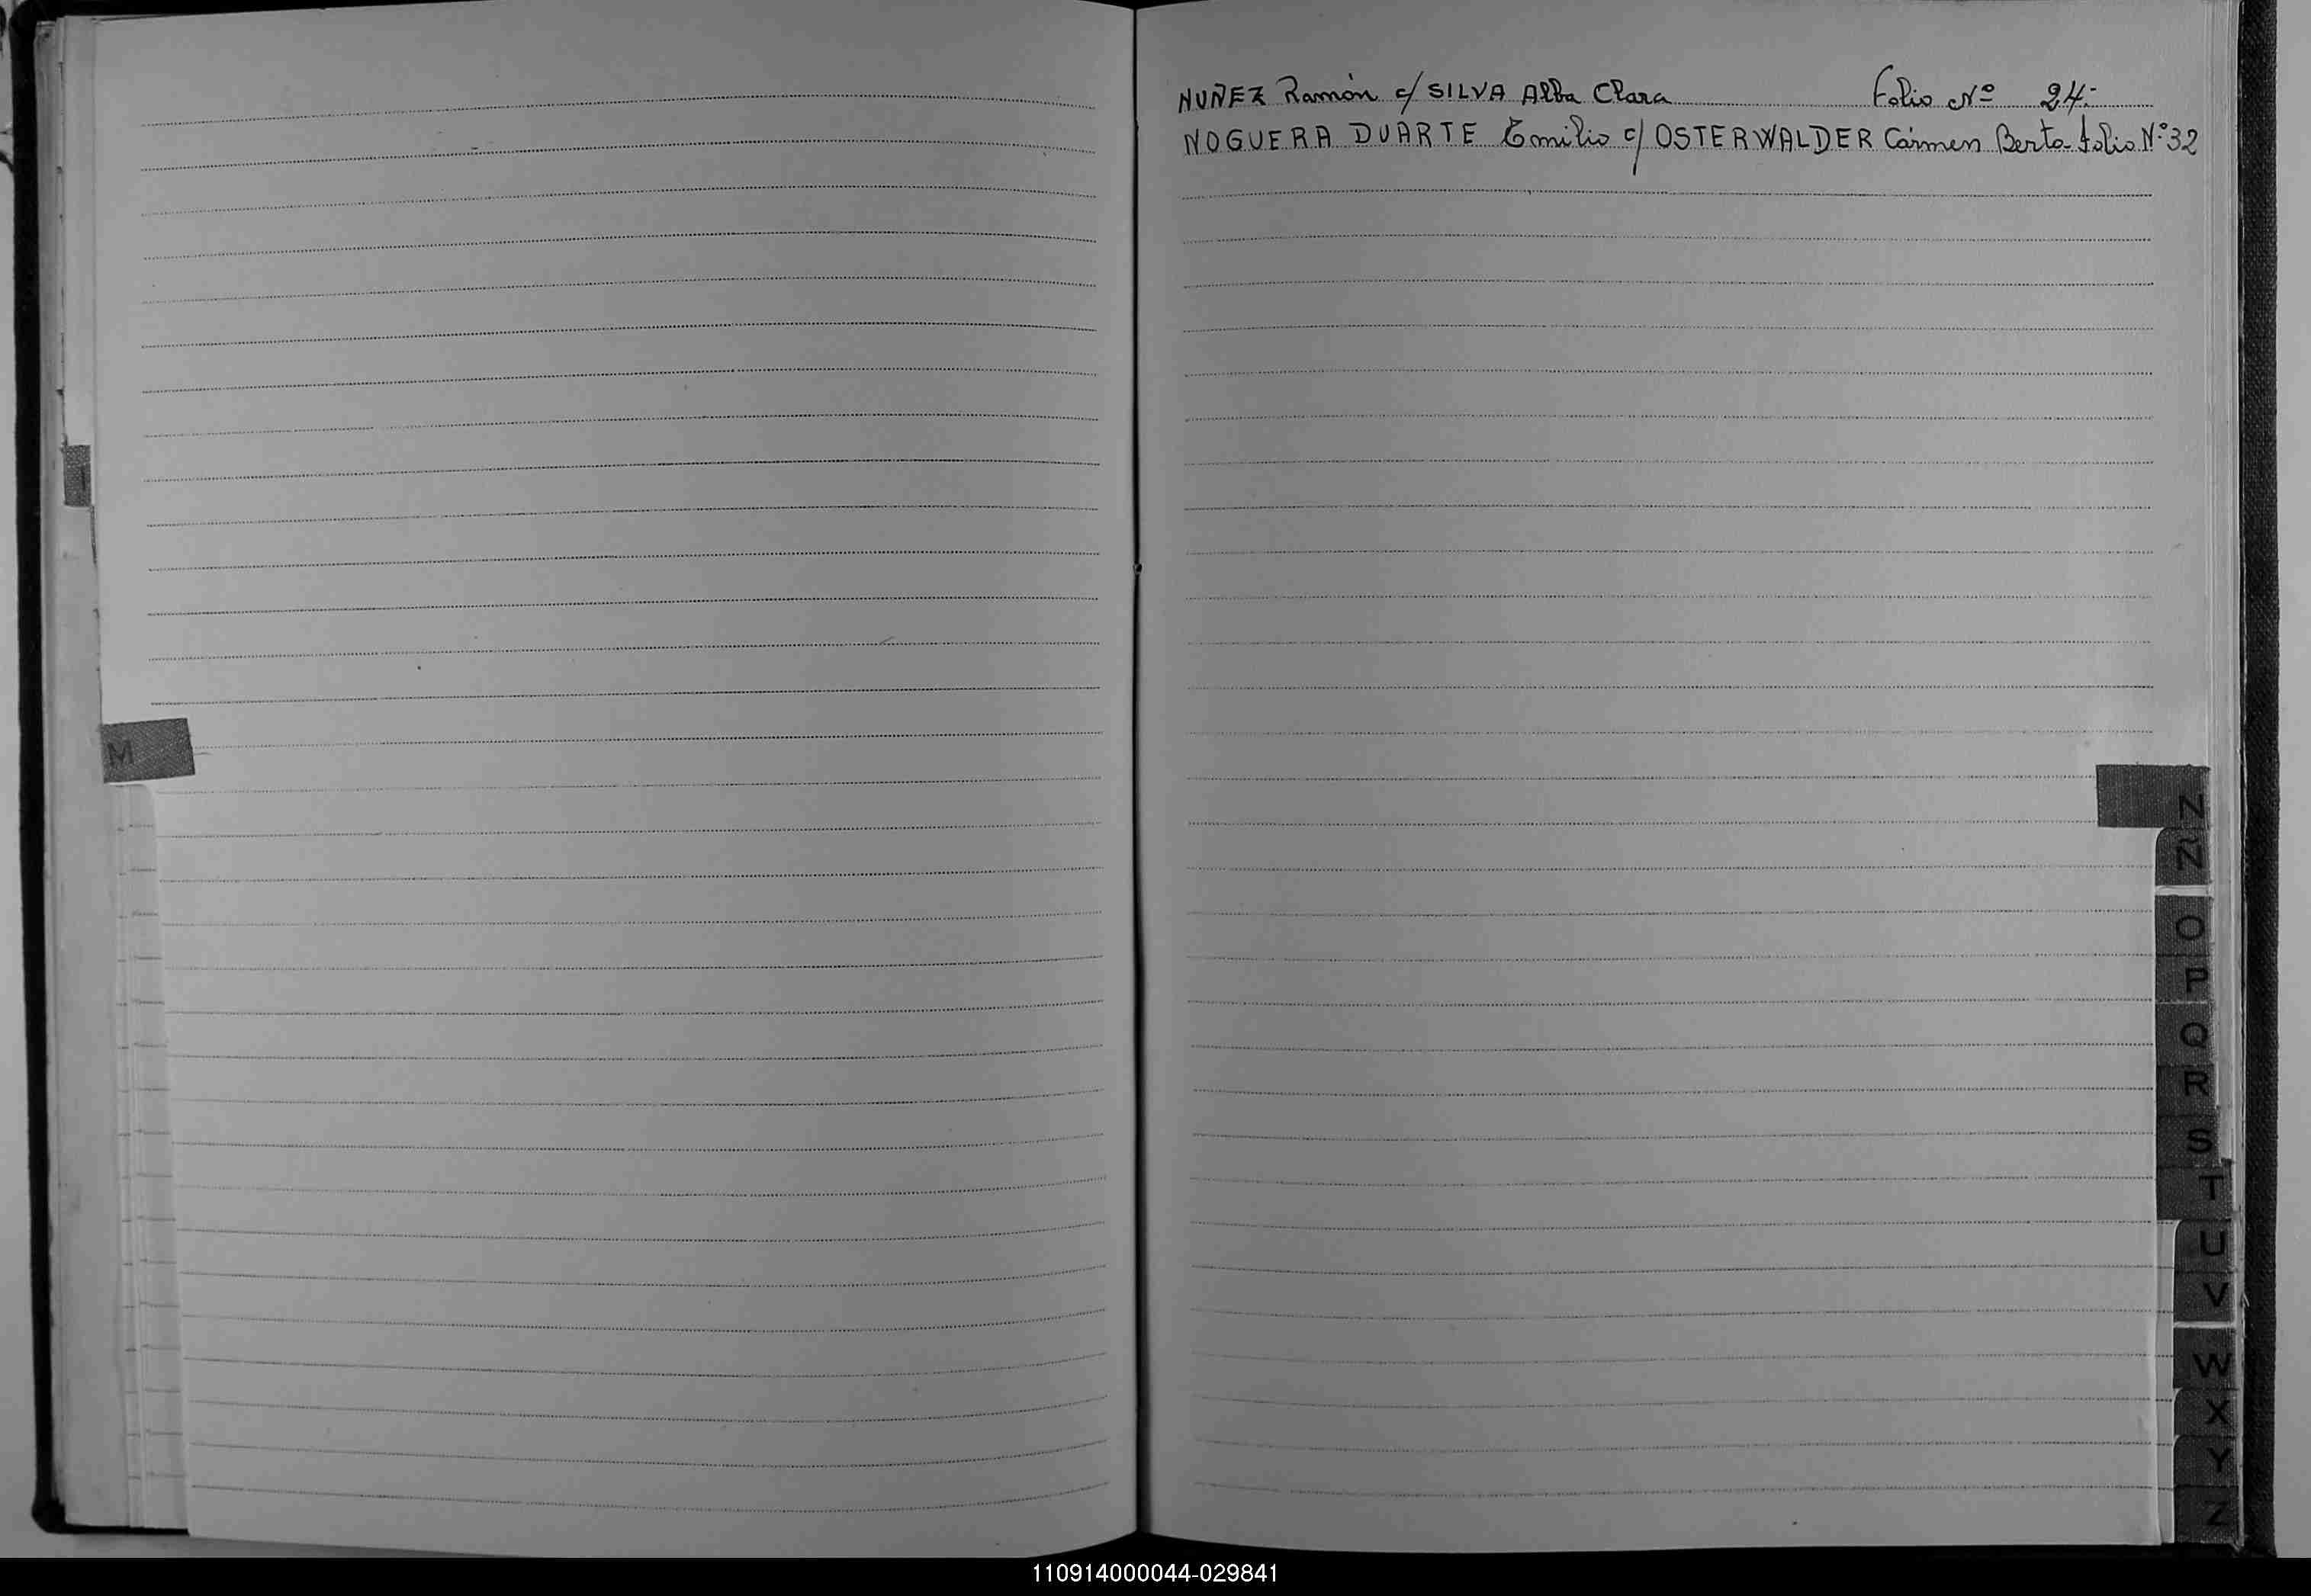 NUÑEZ Ramón c/ SILVA Alba Clara Folio Nº 24.-
NOGUERA DUARTE Emilio c/ OSTERWALDER Cármen Berta-folio Nº 32
M
N
Ñ
O
P
Q
R
S
T
U
V
W
X
Y
Z
110914000044-029841